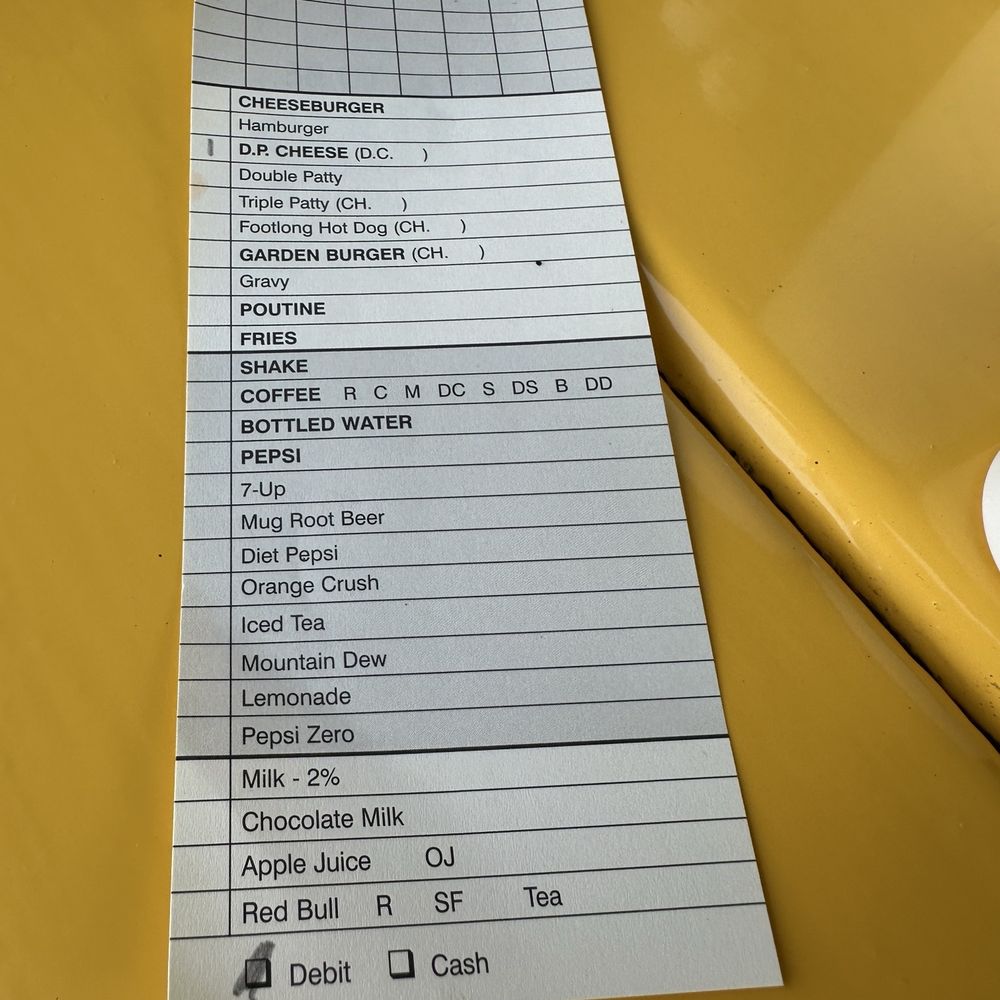 CHEESEBURGER
Hamburger
| D.P. CHEESE (D.C. )
Double Patty
Triple Patty (CH. )
Footlong Hot Dog (CH. )
GARDEN BURGER (CH. )
Gravy
POUTINE
FRIES
SHAKE
COFFEE R C M DC S DS B DD
BOTTLED WATER
PEPSI
7-Up
Mug Root Beer
Diet Pepsi
Orange Crush
Iced Tea
Mountain Dew
Lemonade
Pepsi Zero
Milk - 2%
Chocolate Milk
Apple Juice OJ
Red Bull R SF Tea
Debit Cash